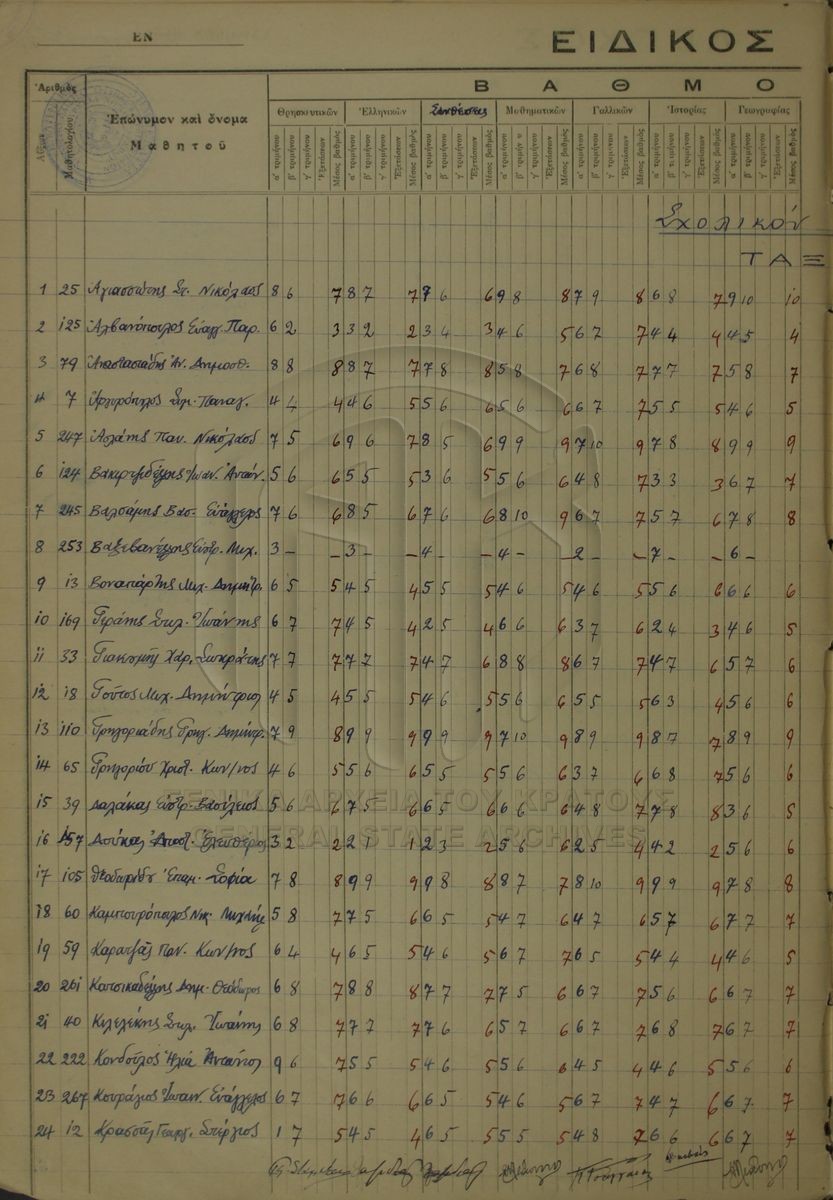 ΕΝ
ΕΙΔΙΚΟΣ
Ἀριθμὸς
Β Α Θ Μ Ο
Αὔξων
Μαθητολογίου
Ἐπώνυμον καὶ ὄνομα
Μαθητοῦ
Θρησκευτικῶν Ἑλληνικῶν Συνθέσεως Μαθηματικῶν Γαλλικῶν Ἱστορίας Γεωγραφίας
α' τριμήνου β' τριμήνου γ' τριμήνου Ἐξετάσεων Μέσος βαθμός
Σχολικόν
ΤΑΞ
1 25 Νικόλαος 8 6 7 8 7 7 7 6 6 9 8 8 7 9 8 6 8 7 9 10 10
2 125 Ἀλβανόπουλος Εὐαγγ. Παρ. 6 2 3 3 2 2 3 4 3 4 6 5 6 7 7 4 4 4 4 5 4
3 79 Ἀναστασιάδης Ἀν. Δημοσθ. 8 8 8 8 7 7 7 8 8 5 8 7 6 8 7 7 7 7 5 8 7
4 7 Ἀργυρόπουλος Παναγ. 4 4 4 4 6 5 5 6 6 5 6 6 6 7 7 5 5 5 4 6 5
5 247 Παν. Νικόλαος 7 5 6 9 6 7 8 5 6 9 9 9 7 10 9 7 8 8 9 9 9
6 124 Ἰωάν. Ἀντών. 5 6 6 5 5 5 3 6 5 5 6 6 4 8 7 3 3 3 6 7 7
7 245 Βαλσάμης Βασ. Εὐάγγελος 7 6 6 8 5 6 7 6 6 8 10 9 6 7 7 5 7 6 7 8 8
8 253 Βαξεβανέλλης Εὐστρ. Μιχ. 3 – – 3 – – 4 – – 4 – – 2 – – 7 – – 6 –
9 13 Βοναπάρτης Μιχ. Δημήτρ. 6 5 5 4 5 4 5 5 5 4 6 5 4 6 5 5 6 6 6 6 6
10 169 Γεράνης Στυλ. Ἰωάννης 6 7 7 4 5 4 2 5 4 6 6 6 3 7 6 2 4 3 4 6 5
11 33 Γιακουμῆς Χαρ. Σωκράτης 7 7 7 7 7 7 4 7 6 8 8 8 6 7 7 4 7 6 5 7 6
12 18 Γοῦτος Μιχ. Δημήτριος 4 5 4 5 5 5 4 6 5 5 6 6 5 5 5 6 3 4 5 6 6
13 110 Γρηγοριάδης Γρηγ. Δημήτρ. 7 9 8 9 9 9 9 9 9 7 10 9 8 9 9 8 7 7 8 9 9
14 65 Γρηγορίου Χριστ. Κων/νος 4 6 5 5 6 6 5 5 5 5 6 6 3 7 6 6 8 7 5 6 6
15 39 Δαλάκας Εὐστρ. Βασίλειος 5 6 6 7 5 6 6 5 6 6 6 6 4 8 7 7 8 8 3 6 5
16 157 Δούκας Ἀποστ. Ἐλευθέριος 3 2 2 2 1 1 2 3 2 5 6 6 2 5 4 4 2 2 5 6 6
17 105 Θεοδωρίδου Ἐπαμ. Σοφία 7 8 8 9 9 9 9 8 8 8 7 7 8 10 9 9 9 9 7 8 8
18 60 Καμπουρόπουλος Νικ. 5 8 7 7 5 6 6 5 5 4 7 6 4 7 6 5 7 6 7 7 7
19 59 Καρατζᾶς Παν. Κων/νος 6 4 4 6 5 5 4 6 5 6 7 7 6 5 5 4 4 4 4 6 5
20 261 Κατσικαδέλλης Δημ. Θεόδωρος 6 8 7 8 8 8 7 7 7 7 5 6 6 7 7 5 6 6 6 7 7
21 40 Κελελέκης Στυλ. Ἰωάννης 6 8 7 7 7 7 7 6 6 5 7 6 6 7 7 6 8 7 6 7 7
22 222 Κονδύλος Ἠλία Ἀντώνιος 9 6 7 5 5 5 4 6 5 5 6 6 4 5 4 4 6 5 5 6 6
23 267 Κουράγιος Ἰωάν. Εὐάγγελος 6 7 7 6 6 6 6 5 5 4 6 5 6 7 7 4 7 6 6 7 7
24 12 Κρασσᾶς Γεωργ. Στέργιος 1 7 5 4 5 4 6 5 5 5 5 5 4 8 7 6 6 6 6 7 7
ΓΕΝΙΚΑ ΑΡΧΕΙΑ ΤΟΥ ΚΡΑΤΟΥΣ
GENERAL STATE ARCHIVES